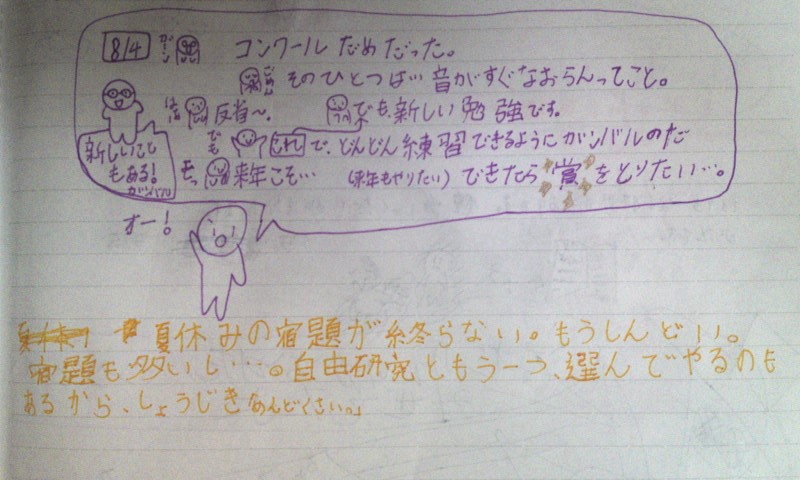 8/4 ガーン コンクールだめだった。
そのひとつは…音がすぐなおらんってこと。
反省〜。 でも、新しい勉強です。
でも これ で、どんどん練習できるようにガンバルのだ
来年こそ… (来年もやりたい) できたら"賞"をとりたい…。
新しいこと
もある!
ガンバル
オー!
夏休み 夏休みの宿題が終らない。もうしんどい。
宿題も多いし…。自由研究ともう一つ、選んでやるのも
あるから、しょうじきめんどくさい。」